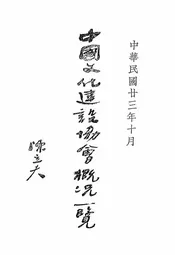 中華民國廿三年十月
中國文化建設協會概況一覽
陳立夫